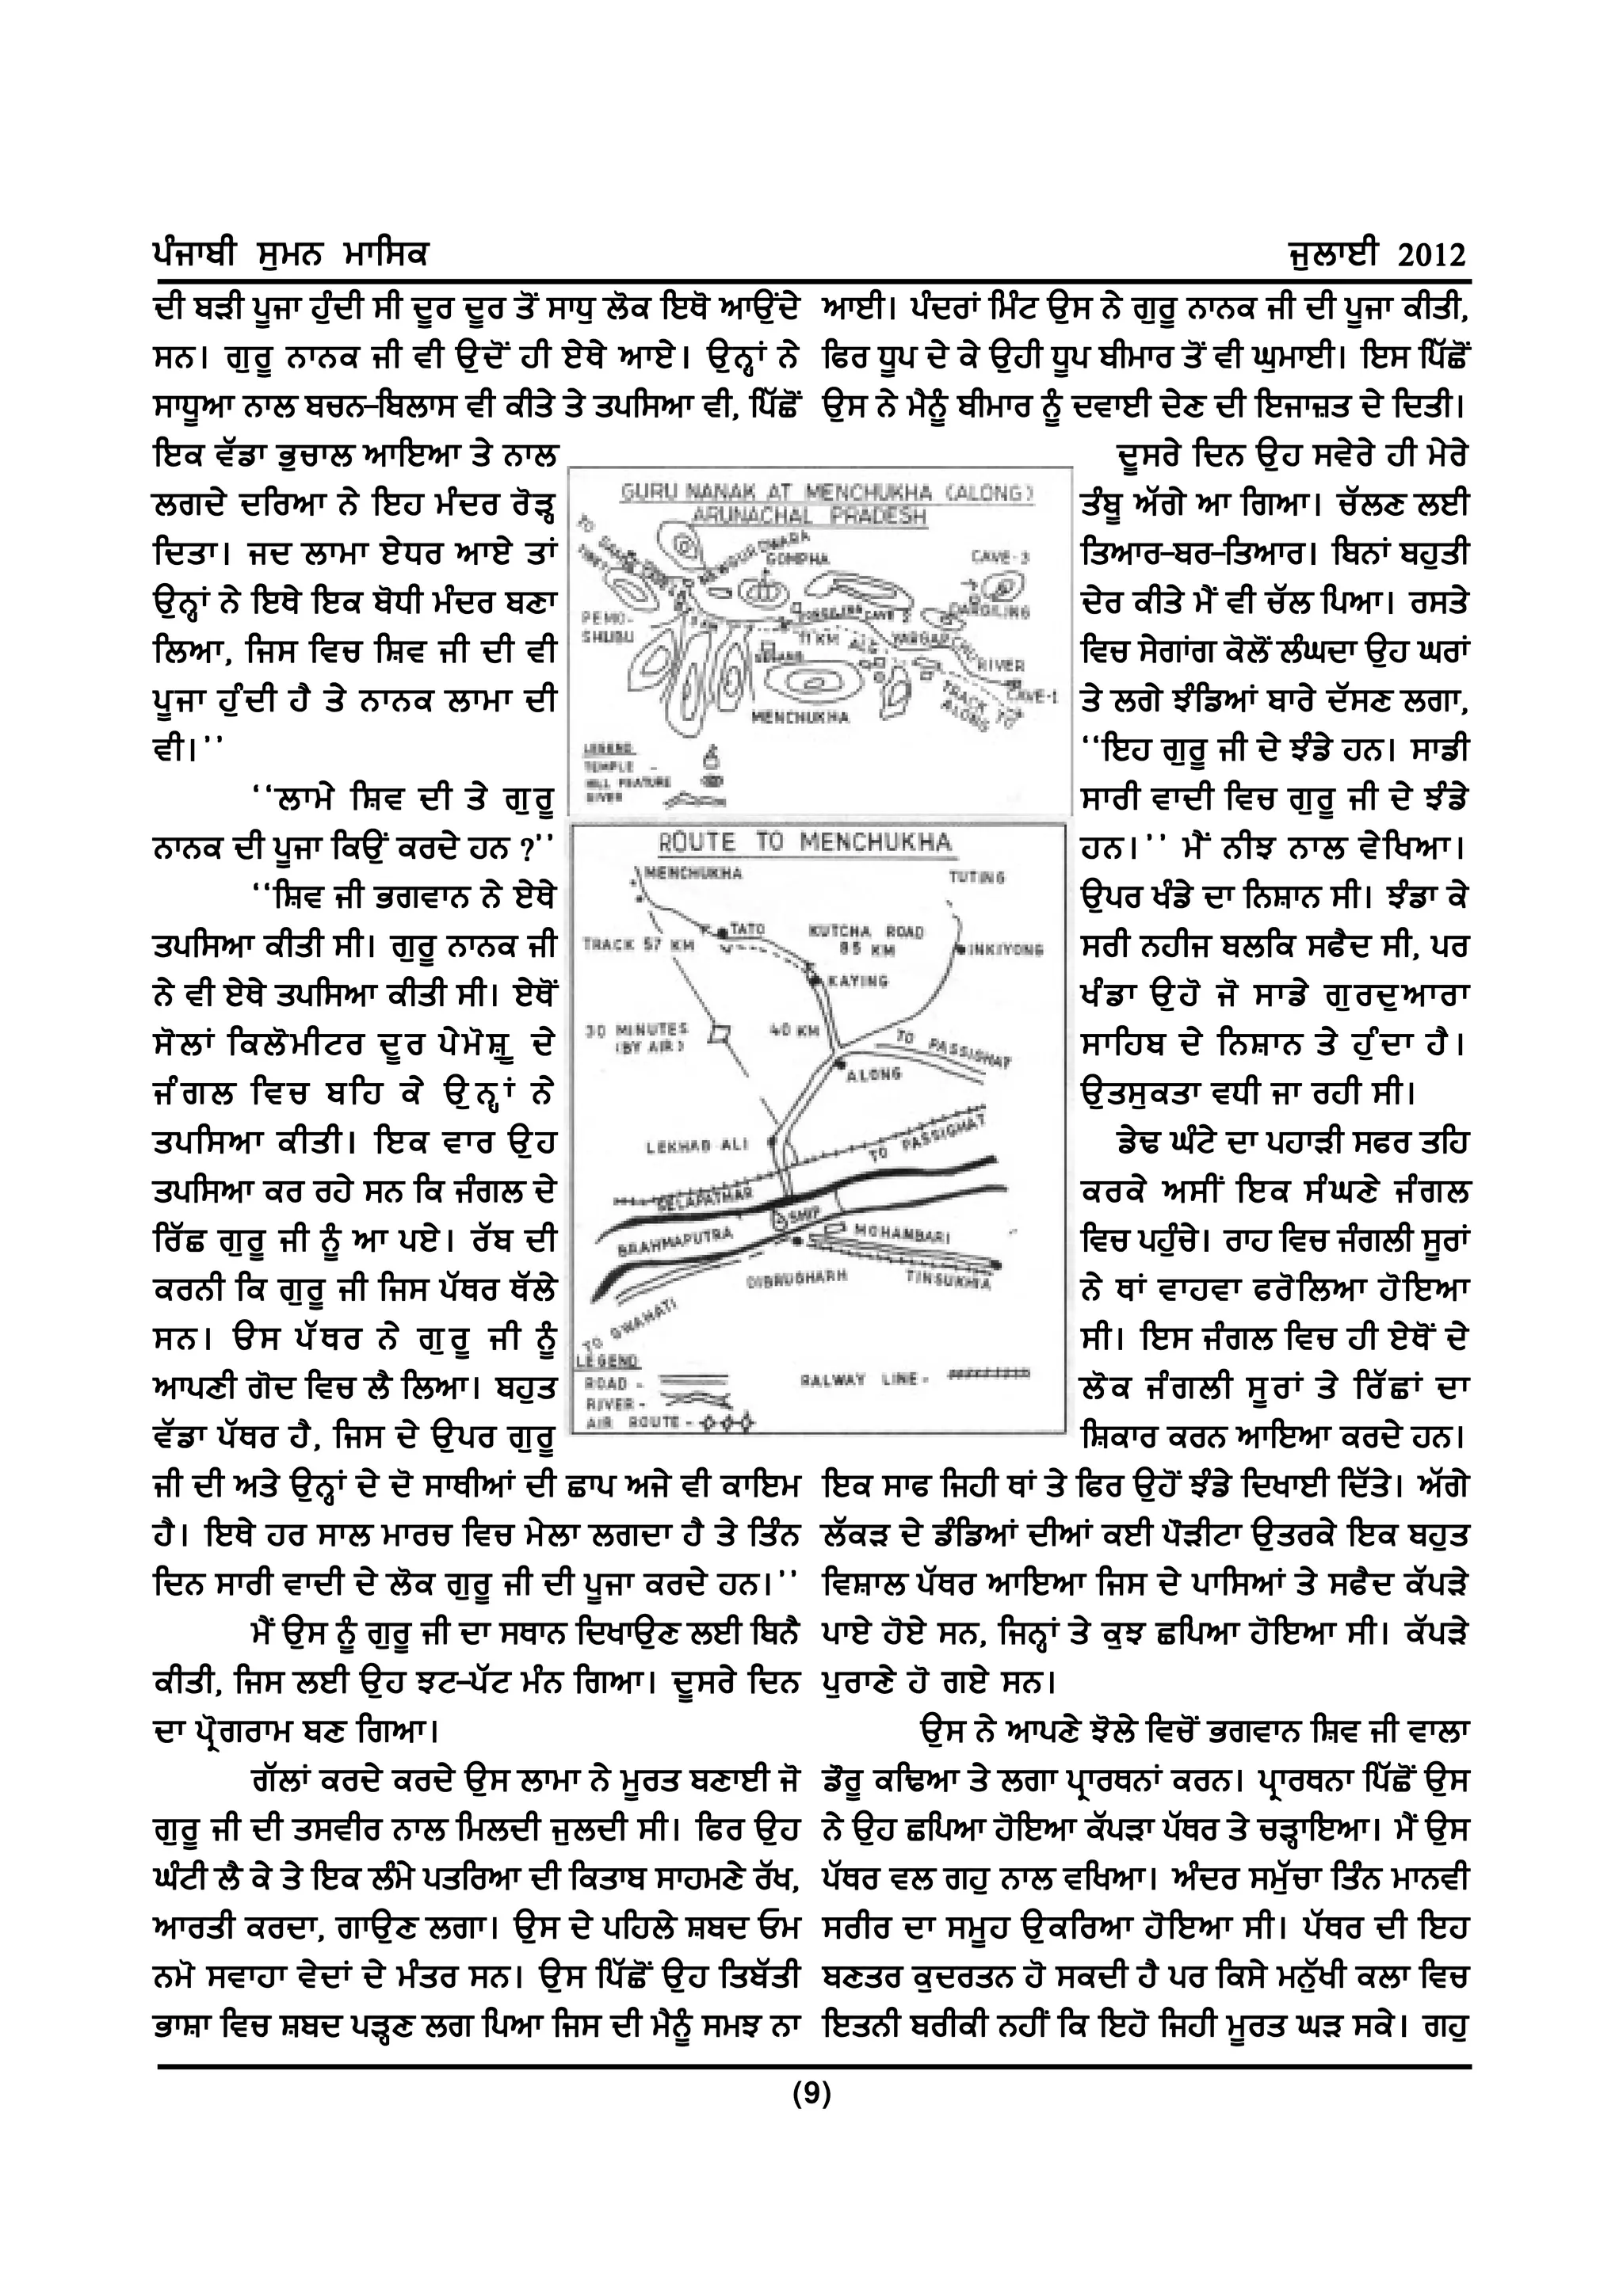 ਪੰਜਾਬੀ ਸੁਮਨ ਮਾਸਿਕ
ਜੁਲਾਈ 2012
ਦੀ ਬੜੀ ਪੂਜਾ ਹੁੰਦੀ ਸੀ ਦੂਰ ਦੂਰ ਤੋਂ ਸਾਧੁ ਲੋਕ ਇਥੋ ਆਉਂਦੇ
ਸਨ। ਗੁਰੂ ਨਾਨਕ ਜੀ ਵੀ ਉਦੋਂ ਹੀ ਏਥੇ ਆਏ। ਉਨ੍ਹਾਂ ਨੇ
ਸਾਧੂਆ ਨਾਲ ਬਚਨ-ਬਿਲਾਸ ਵੀ ਕੀਤੇ ਤੇ ਤਪਸਿਆ ਵੀ, ਪਿੱਛੋਂ
ਇਕ ਵੱਡਾ ਭੁਚਾਲ ਆਇਆ ਤੇ ਨਾਲ
ਲਗਦੇ ਦਰਿਆ ਨੇ ਇਹ ਮੰਦਰ ਰੋੜ੍ਹ
ਦਿਤਾ। ਜਦ ਲਾਮਾ ਏਧਰ ਆਏ ਤਾਂ
ਉਨ੍ਹਾਂ ਨੇ ਇਥੇ ਇਕ ਬੋਧੀ ਮੰਦਰ ਬਣਾ
ਲਿਆ, ਜਿਸ ਵਿਚ ਸ਼ਿਵ ਜੀ ਦੀ ਵੀ
ਪੂਜਾ ਹੁੰਦੀ ਹੈ ਤੇ ਨਾਨਕ ਲਾਮਾ ਦੀ
ਵੀ।''
‘‘ਲਾਮੇ ਸ਼ਿਵ ਦੀ ਤੇ ਗੁਰੂ
ਨਾਨਕ ਦੀ ਪੂਜਾ ਕਿਉਂ ਕਰਦੇ ਹਨ ?''
‘‘ਸ਼ਿਵ ਜੀ ਭਗਵਾਨ ਨੇ ਏਥੇ
ਤਪਸਿਆ ਕੀਤੀ ਸੀ। ਗੁਰੂ ਨਾਨਕ ਜੀ
ਨੇ ਵੀ ਏਥੇ ਤਪਸਿਆ ਕੀਤੀ ਸੀ। ਏਥੋਂ
ਸੋਲਾਂ ਕਿਲੋਮੀਟਰ ਦੂਰ ਪੇਮੋਸ਼ੂ ਦੇ
ਜੰਗਲ ਵਿਚ ਬਹਿ ਕੇ ਉਨ੍ਹਾਂ ਨੇ
ਤਪਸਿਆ ਕੀਤੀ। ਇਕ ਵਾਰ ਉਹ
ਤਪਸਿਆ ਕਰ ਰਹੇ ਸਨ ਕਿ ਜੰਗਲ ਦੇ
ਰਿੱਛ ਗੁਰੂ ਜੀ ਨੂੰ ਆ ਪਏ। ਰੱਬ ਦੀ
ਕਰਨੀ ਕਿ ਗੁਰੂ ਜੀ ਜਿਸ ਪੱਥਰ ਥੱਲੇ
ਸਨ। ੳਸ ਪੱਥਰ ਨੇ ਗੁਰੂ ਜੀ ਨੂੰ
ਆਪਣੀ ਗੋਦ ਵਿਚ ਲੈ ਲਿਆ। ਬਹੁਤ
ਵੱਡਾ ਪੱਥਰ ਹੈ, ਜਿਸ ਦੇ ਉਪਰ ਗੁਰੂ
ਜੀ ਦੀ ਅਤੇ ਉਨ੍ਹਾਂ ਦੇ ਦੋ ਸਾਥੀਆਂ ਦੀ ਛਾਪ ਅਜੇ ਵੀ ਕਾਇਮ
ਹੈ। ਇਥੇ ਹਰ ਸਾਲ ਮਾਰਚ ਵਿਚ ਮੇਲਾ ਲਗਦਾ ਹੈ ਤੇ ਤਿੰਨ
ਦਿਨ ਸਾਰੀ ਵਾਦੀ ਦੇ ਲੋਕ ਗੁਰੂ ਜੀ ਦੀ ਪੂਜਾ ਕਰਦੇ ਹਨ।''
ਮੈਂ ਉਸ ਨੂੰ ਗੁਰੂ ਜੀ ਦਾ ਸਥਾਨ ਦਿਖਾਉਣ ਲਈ ਬਿਨੈ
ਕੀਤੀ, ਜਿਸ ਲਈ ਉਹ ਝਟ-ਪੱਟ ਮੰਨ ਗਿਆ। ਦੂਸਰੇ ਦਿਨ
ਦਾ ਪ੍ਰੋਗਰਾਮ ਬਣ ਗਿਆ।
ਗੱਲਾਂ ਕਰਦੇ ਕਰਦੇ ਉਸ ਲਾਮਾ ਨੇ ਮੂਰਤ ਬਣਾਈ ਜੋ
ਗੁਰੂ ਜੀ ਦੀ ਤਸਵੀਰ ਨਾਲ ਮਿਲਦੀ ਜੁਲਦੀ ਸੀ। ਫਿਰ ਉਹ
ਘੰਟੀ ਲੈ ਕੇ ਤੇ ਇਕ ਲੰਮੇ ਪਤਰਿਆ ਦੀ ਕਿਤਾਬ ਸਾਹਮਣੇ ਰੱਖ,
ਆਰਤੀ ਕਰਦਾ, ਗਾਉਣ ਲਗਾ। ਉਸ ਦੇ ਪਹਿਲੇ ਸ਼ਬਦ ਓਮ
ਨਮੋ ਸਵਾਹਾ ਵੇਦਾਂ ਦੇ ਮੰਤਰ ਸਨ। ਉਸ ਪਿੱਛੋਂ ਉਹ ਤਿਬੱਤੀ
ਭਾਸ਼ਾ ਵਿਚ ਸ਼ਬਦ ਪੜ੍ਹਣ ਲਗ ਪਿਆ ਜਿਸ ਦੀ ਮੈਨੂੰ ਸਮਝ ਨਾ
GURU NANAK AT MENCHUKHA (ALONG)
ARUNACHAL PRADESH
NEW GURDWARA
GOMPHA
CAVE-3
PEMO-
SHUBU
DARGILING
11 KM ALG.
YARGAP CHU
RIVER
CAVE-1
TRACK TO
ALONG
MENCHUKHA
LEGEND
TEMPLE -
HILL FEATURE
RIVER
ROUTE TO MENCHUKHA
MENCHUKHA
TUTING
TATO
TRACK 57 KM
KUTCHA ROAD
85 KM
INKIYONG
KAYING
30 MINUTES
(BY AIR)
40 KM
TO PASSIGHAT
ALONG
LEKHAB ALI
TO PASSIGHAT
SELAPATHAR
SHIP
BRAHMAPUTRA
MOHAMBARI
DIBRUGHARH
TINSUKHIA
TO GWAHATI
LEGEND
ROAD -
RALWAY LINE -
RIVER -
AIR ROUTE -
ਆਈ। ਪੰਦਰਾਂ ਮਿੰਟ ਉਸ ਨੇ ਗੁਰੂ ਨਾਨਕ ਜੀ ਦੀ ਪੂਜਾ ਕੀਤੀ,
ਫਿਰ ਧੂਪ ਦੇ ਕੇ ਉਹੀ ਧੂਪ ਬੀਮਾਰ ਤੋਂ ਵੀ ਘੁਮਾਈ। ਇਸ ਪਿੱਛੋਂ
ਉਸ ਨੇ ਮੈਨੂੰ ਬੀਮਾਰ ਨੂੰ ਦਵਾਈ ਦੇਣ ਦੀ ਇਜਾਜ਼ਤ ਦੇ ਦਿਤੀ।
ਦੂਸਰੇ ਦਿਨ ਉਹ ਸਵੇਰੇ ਹੀ ਮੇਰੇ
ਤੰਬੂ ਅੱਗੇ ਆ ਗਿਆ। ਚੱਲਣ ਲਈ
ਤਿਆਰ-ਬਰ-ਤਿਆਰ। ਬਿਨਾਂ ਬਹੁਤੀ
ਦੇਰ ਕੀਤੇ ਮੈਂ ਵੀ ਚੱਲ ਪਿਆ। ਰਸਤੇ
ਵਿਚ ਸੇਗਾਂਗ ਕੋਲੋਂ ਲੰਘਦਾ ਉਹ ਘਰਾਂ
ਤੇ ਲਗੇ ਝੰਡਿਆਂ ਬਾਰੇ ਦੱਸਣ ਲਗਾ,
‘‘ਇਹ ਗੁਰੂ ਜੀ ਦੇ ਝੰਡੇ ਹਨ। ਸਾਡੀ
ਸਾਰੀ ਵਾਦੀ ਵਿਚ ਗੁਰੂ ਜੀ ਦੇ ਝੰਡੇ
ਹਨ।'' ਮੈਂ ਨੀਝ ਨਾਲ ਵੇਖਿਆ।
ਉਪਰ ਖੰਡੇ ਦਾ ਨਿਸ਼ਾਨ ਸੀ। ਝੰਡਾ ਕੇ
ਸਰੀ ਨਹੀਜ ਬਲਕਿ ਸਫੈਦ ਸੀ, ਪਰ
ਖੰਡਾ ਉਹੋ ਜੋ ਸਾਡੇ ਗੁਰਦੁਆਰਾ
ਸਾਹਿਬ ਦੇ ਨਿਸ਼ਾਨ ਤੇ ਹੁੰਦਾ ਹੈ।
ਉਤਸੁਕਤਾ ਵਧੀ ਜਾ ਰਹੀ ਸੀ।
ਡੇਢ ਘੰਟੇ ਦਾ ਪਹਾੜੀ ਸਫਰ ਤਹਿ
ਕਰਕੇ ਅਸੀਂ ਇਕ ਸੰਘਣੇ ਜੰਗਲ
ਵਿਚ ਪਹੁੰਚੇ। ਰਾਹ ਵਿਚ ਜੰਗਲੀ ਸੂਰਾਂ
ਨੇ ਥਾਂ ਵਾਹਵਾ ਫਰੋਲਿਆ ਹੋਇਆ
ਸੀ। ਇਸ ਜੰਗਲ ਵਿਚ ਹੀ ਏਥੋਂ ਦੇ
ਲੋਕ ਜੰਗਲੀ ਸੂਰਾਂ ਤੇ ਰਿੱਛਾਂ ਦਾ
ਸ਼ਿਕਾਰ ਕਰਨ ਆਇਆ ਕਰਦੇ ਹਨ।
ਇਕ ਸਾਫ ਜਿਹੀ ਥਾਂ ਤੇ ਫਿਰ ਉਹੋਂ ਝੰਡੇ ਦਿਖਾਈ ਦਿੱਤੇ। ਅੱਗੇ
ਲੱਕੜ ਦੇ ਡੰਡਿਆਂ ਦੀਆਂ ਕਈ ਪੌੜੀਟਾ ਉਤਰਕੇ ਇਕ ਬਹੁਤ
ਵਿਸ਼ਾਲ ਪੱਥਰ ਆਇਆ ਜਿਸ ਦੇ ਪਾਸਿਆਂ ਤੇ ਸਫੈਦ ਕੱਪੜੇ
ਪਾਏ ਹੋਏ ਸਨ, ਜਿਨ੍ਹਾਂ ਤੇ ਕੁਝ ਛਪਿਆ ਹੋਇਆ ਸੀ। ਕੱਪੜੇ
ਪੁਰਾਣੇ ਹੋ ਗਏ ਸਨ।
ਉਸ ਨੇ ਆਪਣੇ ਝੋਲੇ ਵਿਚੋਂ ਭਗਵਾਨ ਸ਼ਿਵ ਜੀ ਵਾਲਾ
ਡੌਰੂ ਕਢਿਆ ਤੇ ਲਗਾ ਪ੍ਰਾਰਥਨਾਂ ਕਰਨ। ਪ੍ਰਾਰਥਨਾ ਪਿੱਛੋਂ ਉਸ
ਨੇ ਉਹ ਛਪਿਆ ਹੋਇਆ ਕੱਪੜਾ ਪੱਥਰ ਤੇ ਚੜ੍ਹਾਇਆ। ਮੈਂ ਉਸ
ਪੱਥਰ ਵਲ ਗਹੁ ਨਾਲ ਵਖਿਆ। ਅੰਦਰ ਸਮੁੱਚਾ ਤਿੰਨ ਮਾਨਵੀ
ਸਰੀਰ ਦਾ ਸਮੂਹ ਉਕਰਿਆ ਹੋਇਆ ਸੀ। ਪੱਥਰ ਦੀ ਇਹ
ਬਣਤਰ ਕੁਦਰਤਨ ਹੋ ਸਕਦੀ ਹੈ ਪਰ ਕਿਸੇ ਮਨੁੱਖੀ ਕਲਾ ਵਿਚ
ਇਤਨੀ ਬਰੀਕੀ ਨਹੀਂ ਕਿ ਇਹੋ ਜਿਹੀ ਮੂਰਤ ਘੜ ਸਕੇ। ਗਹੁ
(9)